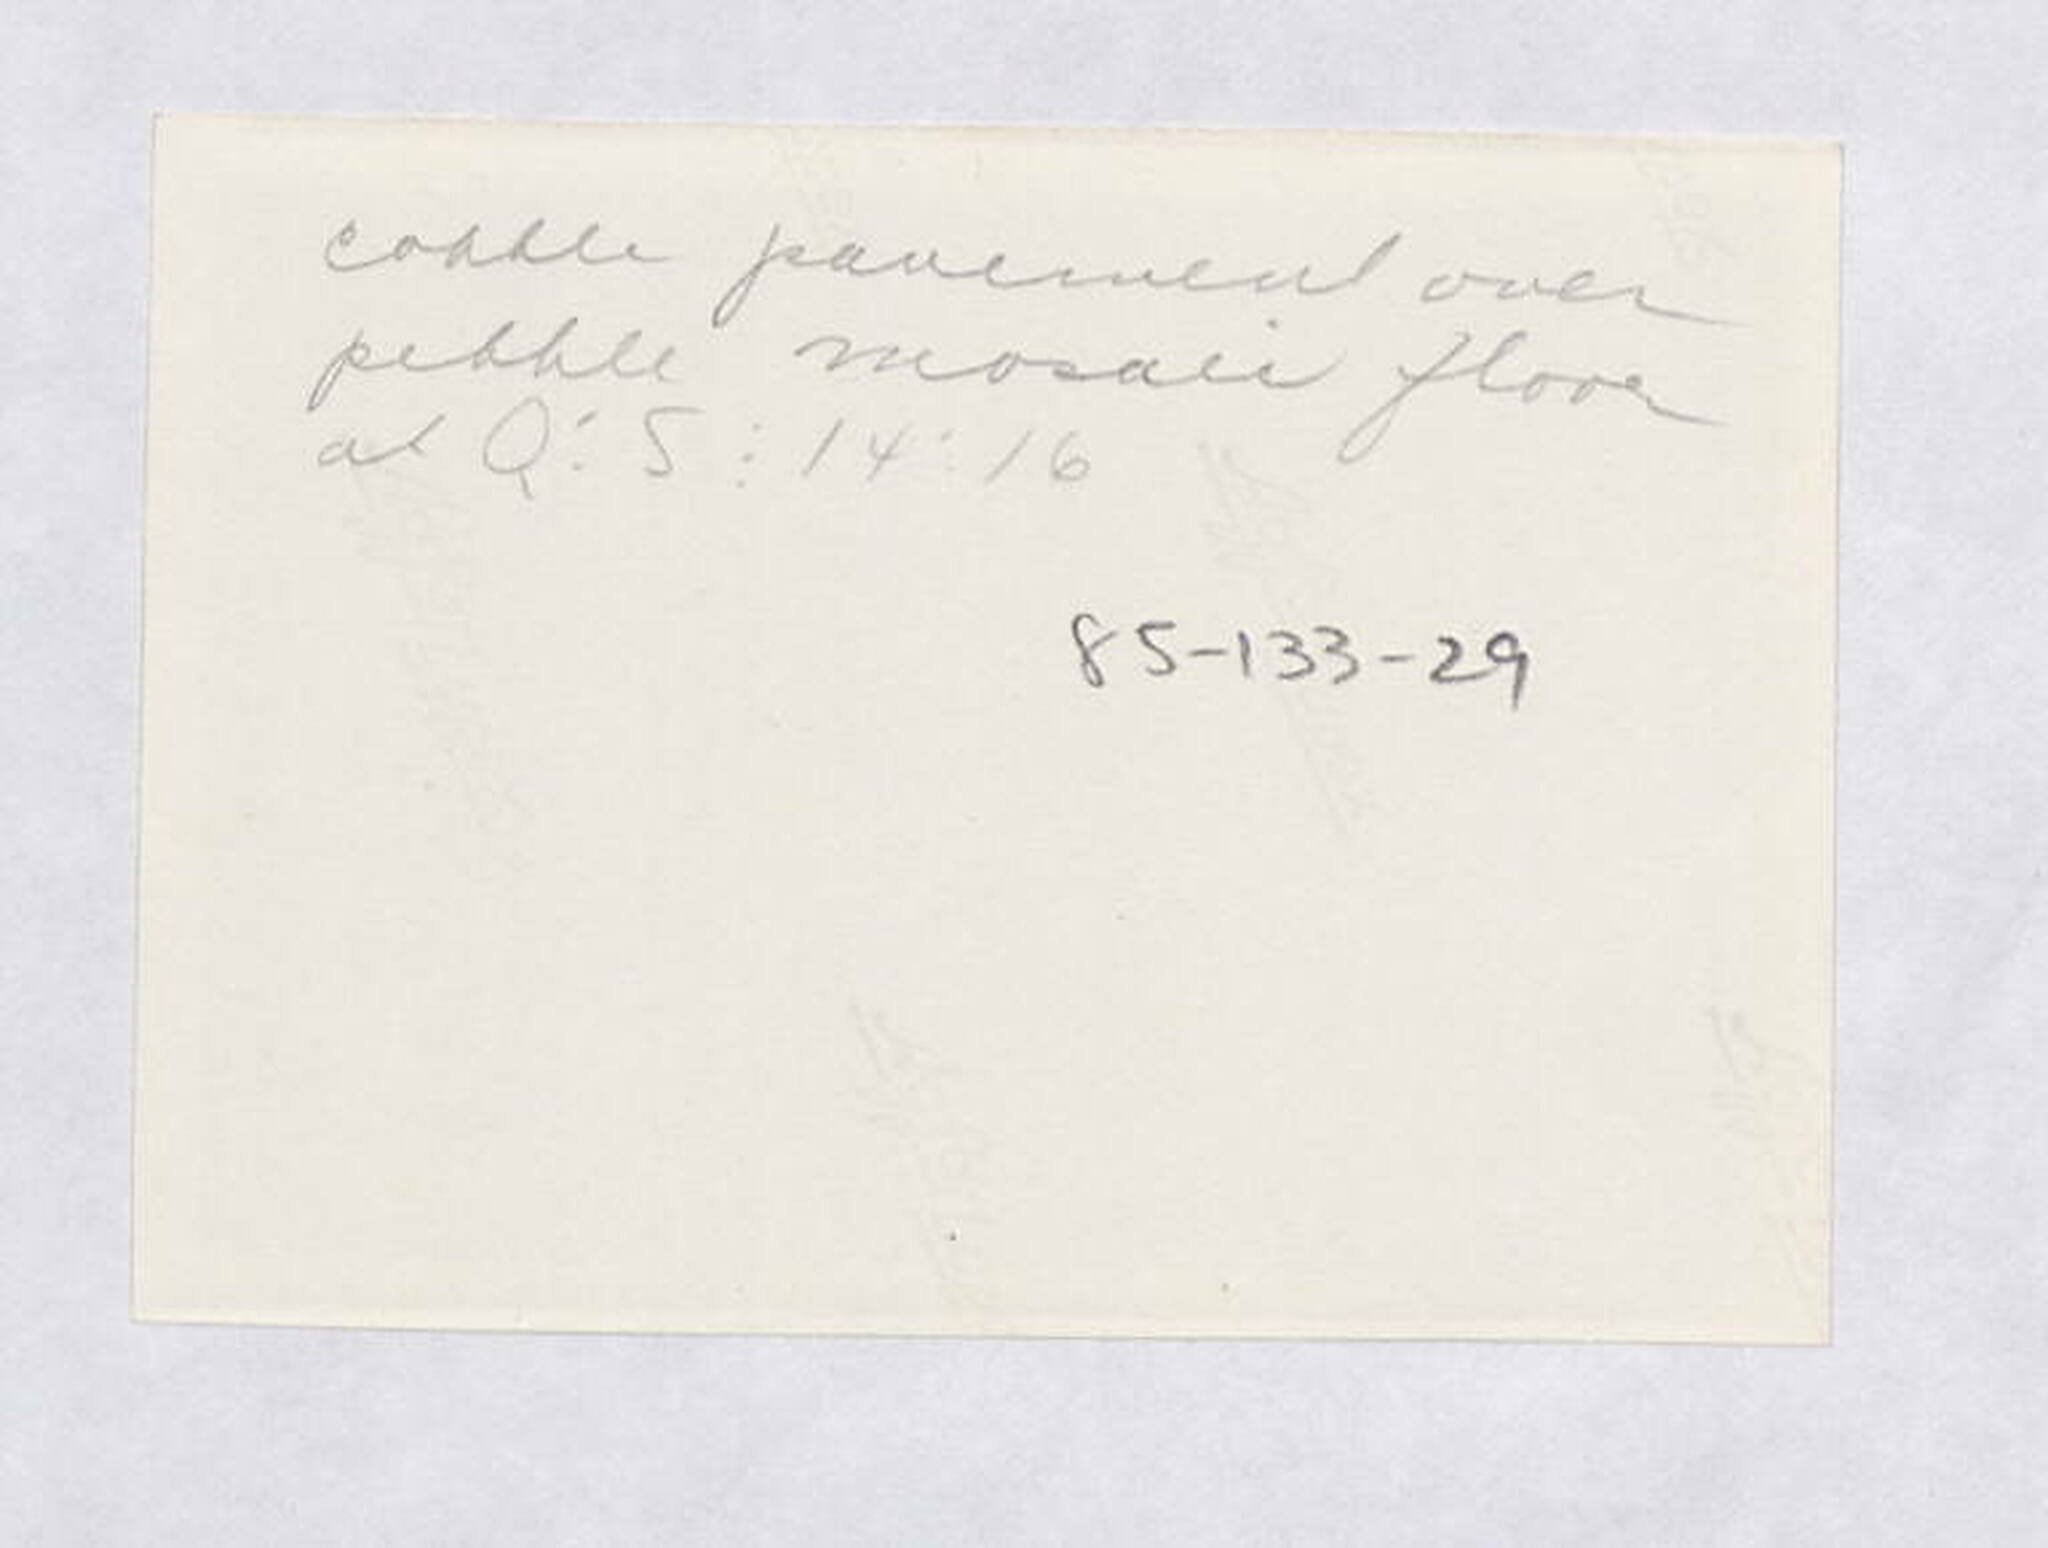 cobble pavement over
pebble mosaic floor
at Q: 5 : 14 : 16
85-133-29